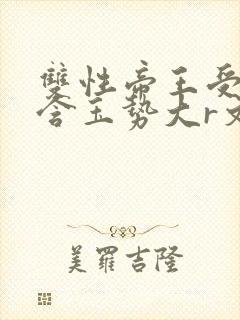 雙性帝王受
含玉勢大r文
美羅吉隆